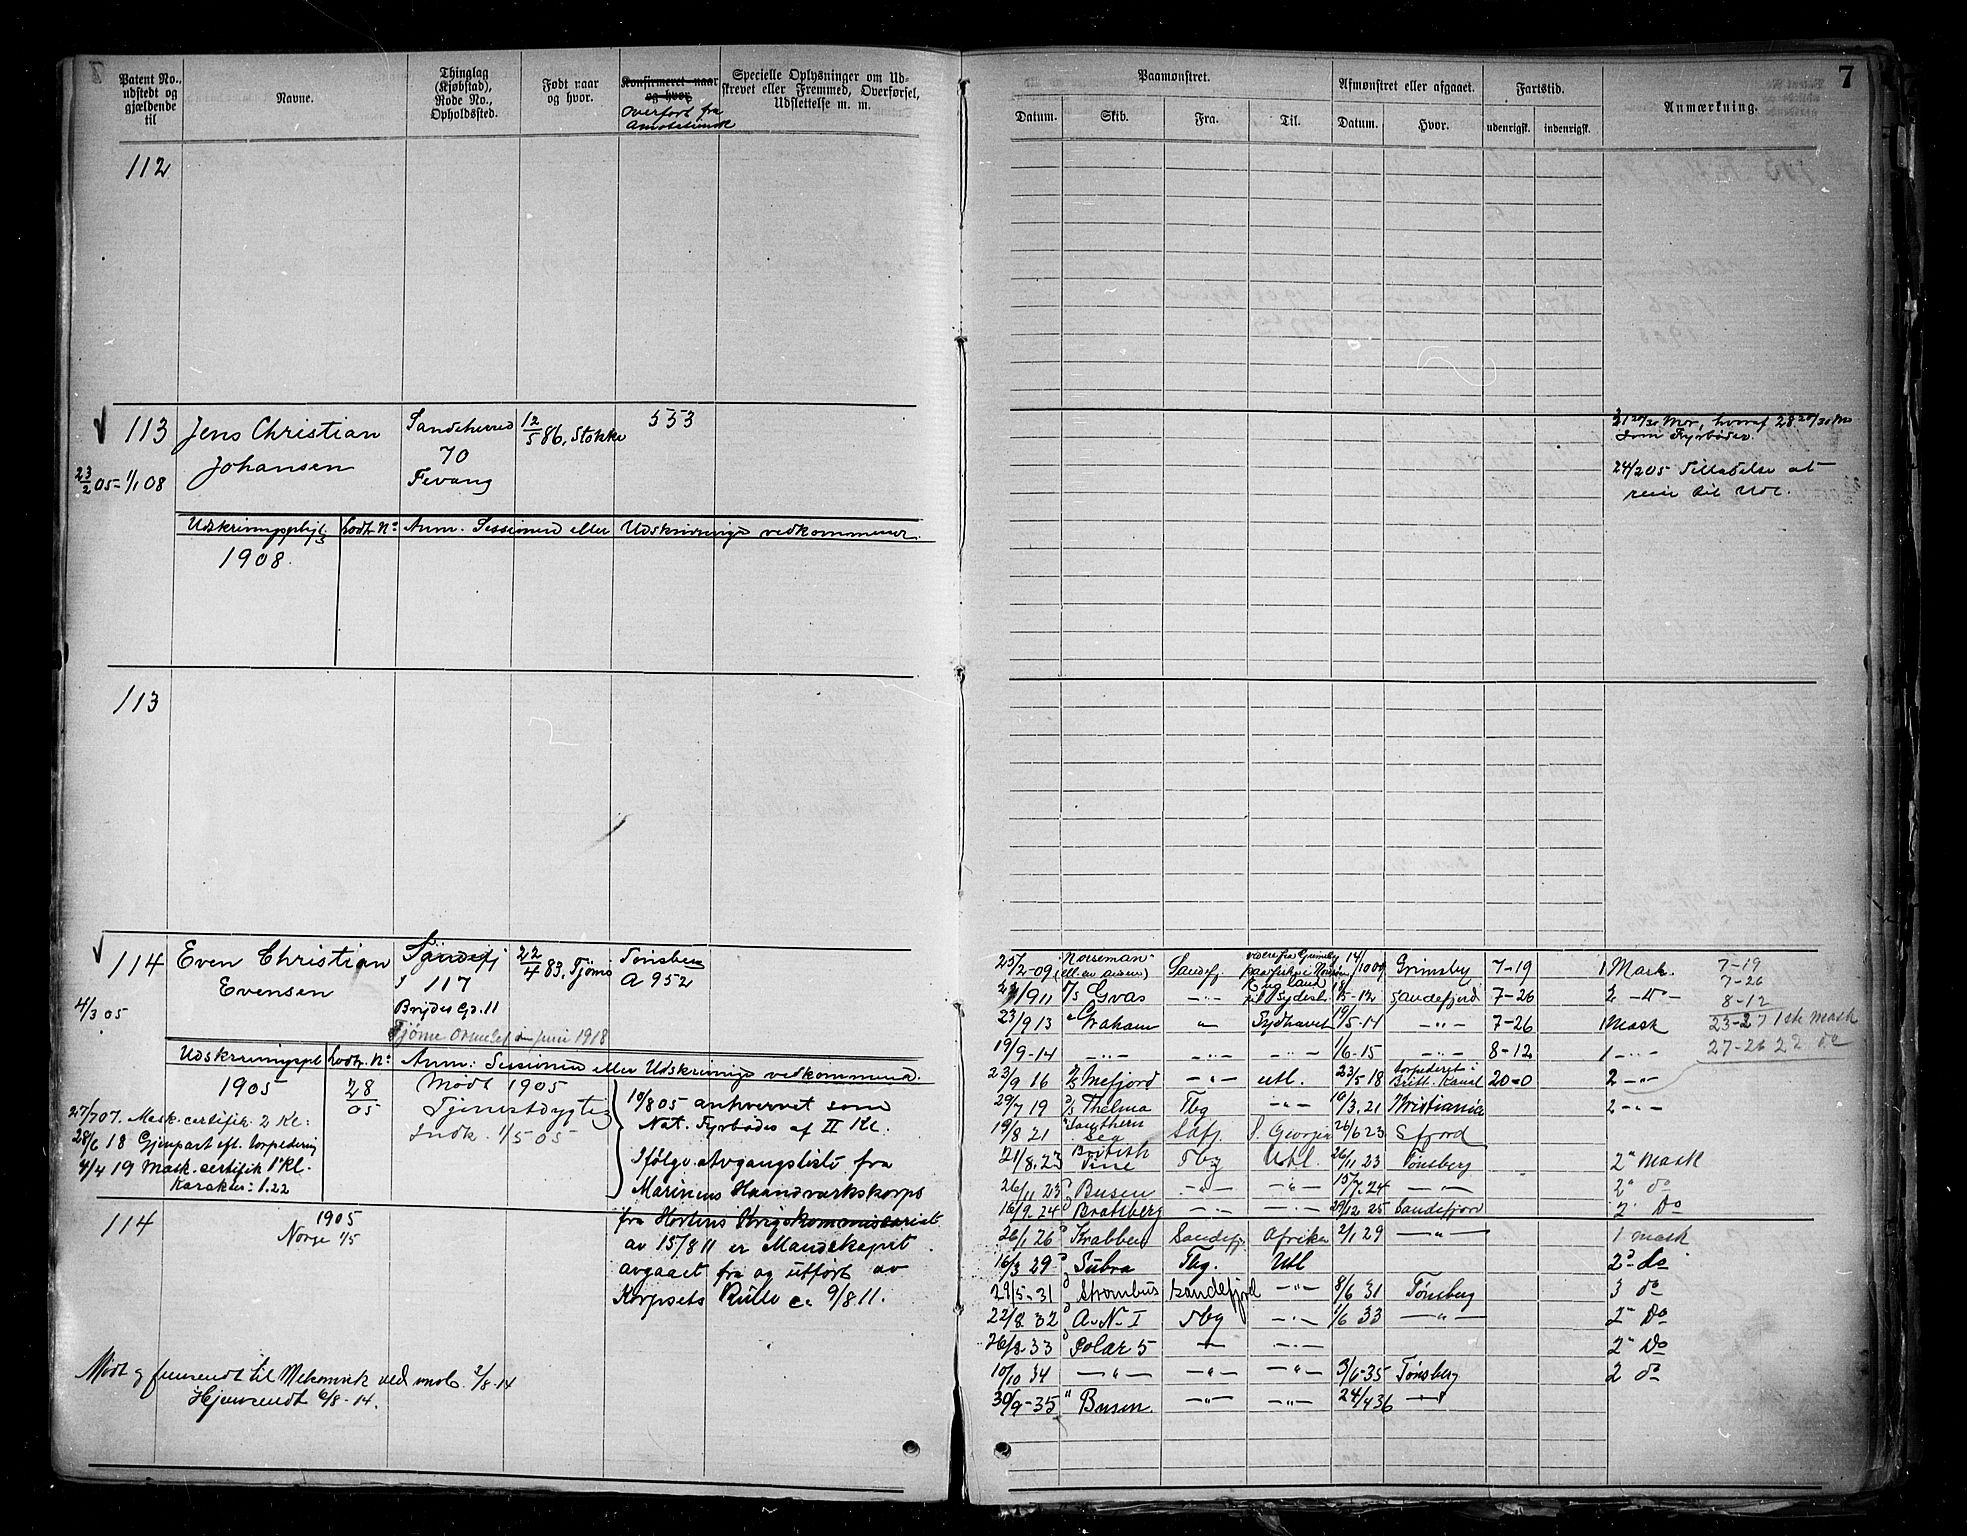 7
Patent No., udstedt og gjældende til
Navne.
Thinglag (Kjøbstad), Rode No., Opholdssted.
Født naar og hvor.
Konfirmeret naar og hvor
Overført fra Annotationsr
Specielle Oplysninger om Udskrevet eller Fremmed, Overførsel, Udslettelse m. m.
Paamønstret.
Afmønstret eller afgaaet.
Fartstid.
Anmærkning.
Datum. Skib. Fra. Til. Datum. Hvor. udenrigsk. indenrigsk.
112
113 Jens Christian Sandeherred 12/5 86, Stokke 553
Johansen 70
23/2 05 - 1/1 08 Fevang
31 20/30 Mdr, hvoraf 28 20/30 Md
som Fyrbøder.
24/2 05 Tilladelse at
reise til Udl.
Udskrivningspligt Lodt. No Anm. Sessionen eller Udskrivnings vedkommende.
1908.
113
114 Even Christian Sandefj 22/4 83, Tjømø Tønsberg
Evensen S 117 A 952
4/3 05 Brydes Gd. 11
Tjøme Ormelet juni 1918
Udskrivningspl Lodt. No Anm: Sessionen eller Udskrivnings vedkommend.
1905 28/05 Mødt 1905
Tjenestdygtig
Indk. 1/5 05
10/8 05 anhvervet som
Nat. Fyrbøder af II Kl.
27/7 07. Mask. certifik. 2 Kl:
28/6 18 Gjenpart eft. torpedering
4/4 19 Mask. certifik 1ste Kl.
Karakter: 1.22
Ifølge Avgangsliste fra
Marinens Haandverkskorps
114 1905
Norge 1/5
fra Hortens Krigskommissariat
av 15/8 11 er Mandskapet
avgaaet fra og utført av
Korpsets Rulle c. 9/8 11.
Mødt g fremsendt til Mekanisk ved mob. 2/8-14
Hjemsendt 6/8-14.
25/2-09 Norseman (ell en anden) Sandefj 14/10 09 Grimsby 7-19 1 Mask. 7-19
/9 11 Gvas -"- England til Sydishl. 18/5-12 Sandefjord 7-26 2 -do- 7-26
8-12
23/9 13 Graham " Sydhavet 19/5-14 -"- 7-26 1 Mask 23-27 1ste Mask
19/9-14 -"- -"- -"- 1/6-15 -"- 8-12 1 -"- 27-26 22 do
23/9 16 Mefjord -"- utl. 23/5 18 torpederet i Britt. Kanal 20-0 2 -"-
29/7 19 Thelma Tbg -"- 10/3.21 Kristiania 2 -"-
19/8 21 Southern Sea Safj. S. Georgia 26/6 23 Sfjord
21/8.23 British Pine Tbg Utl. 26/11 23 Tønsberg 2" mask
26/11 23 Busen -"- -"- 15/7.24 -"- 2" do
16/9.24 Bratsberg -"- -"- 29/12 25 Sandefjord 2" Do
26/1 26 Krabben Sandefj. Afrika 2/1 29 -"- 1 mask
16/3 29 Subra Tbg. Utl 2" do
29/5-31 Strombus Sandefjord -"- 8/6 31 Tønsberg 3 do
22/8 32 A. N. I Tbg -"- 1/6 33 -"- 2" Do
26/8 33 Polar 5 -"- -"- 2" Do
10/10 34 -"- -"- -"- 3/6-35 Tønsberg 2 do
30/9-35 " Busen -"- -"- 24/4 36 -"-